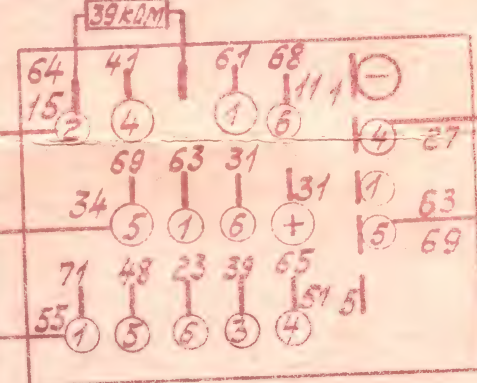 39 КОМ
64 41 61 68
15 2 4 1 6 11 1 −
4 27
69 63 31
34 5 1 6 + 31 1
5 63
69
71 48 23 39 65
55 1 5 6 3 4 51 5